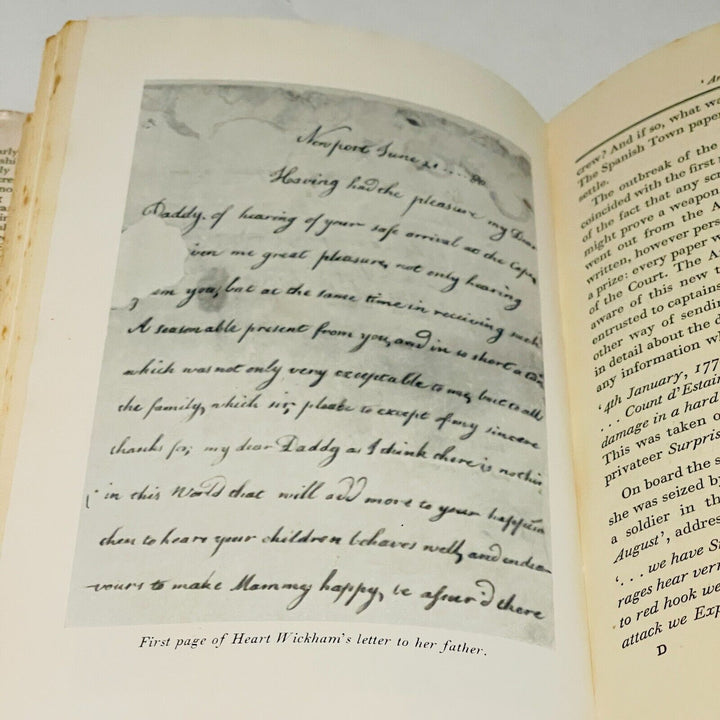 Newport June 21 .... 80
Having had the pleasure my Dear
Daddy. of hearing of your safe arrival at the Cape,
iven me great pleasure, not only hearing
om you, but at the same time in receiving such
A seasonable present from you, and in so short a
which was not only very exceptable to me, but to all
the family, which sir, please to except of my sincere
thanks for, my dear Daddy as I think there is nothin
in this World that will add more to your happi
then to hear your children behaves well, and endea
vours to make Mammy happy, be assur'd there
First page of Heart Wickham's letter to her father.
early
ship
ly
cre
no
g
crew? And if so, what wa
The Spanish Town paper
settle.
The outbreak of the
coincided with the first
of the fact that any scr
might prove a weapon
went out from the A
written, however pers
a prize: every paper w
of the Court. The A
aware of this new t
entrusted to captains
other way of sendin
in detail about the d
any information wh
'4th January, 177
... Count d'Estain
damage in a hard
This was taken o
privateer Surpris
On board the s
she was seized by
a soldier in th
August', addres
'... we have S
rages hear verr
to red hook we
attack we Exp
D